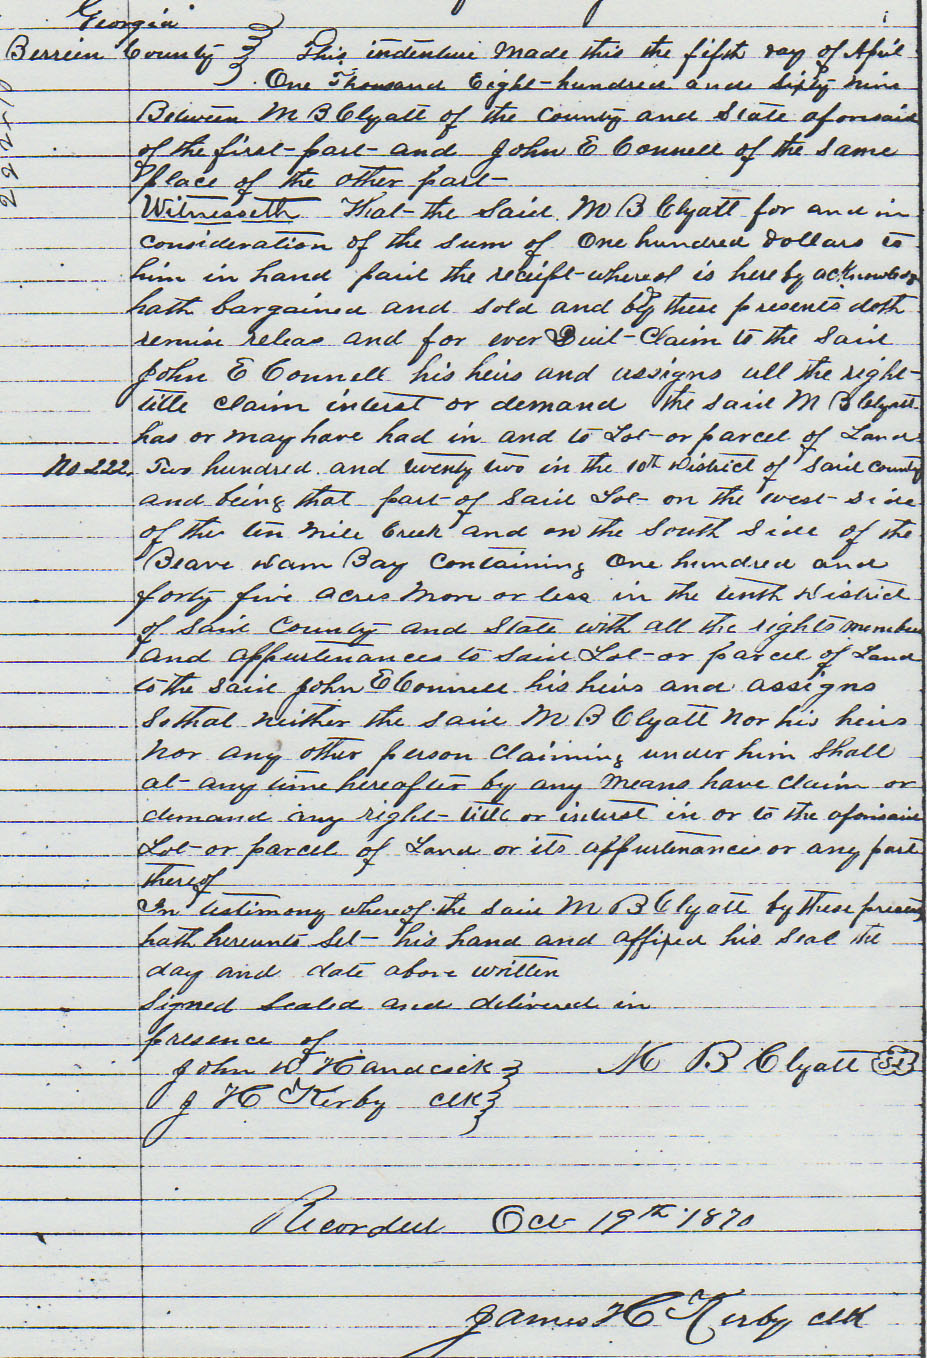 Georgia
Berrien County } This indenture made this the fifth day of April
One Thousand Eight-hundred and sixty nine
Between M B Clyatt of the County and State aforesaid
of the first-part-and John E Connell of the same
Place of the other part-
Witnesseth That-the Said M B Clyatt for and in
consideration of the sum of One hundred dollars to
him in hand paid the receipt-whereof is here by acknowledg
hath bargained and sold and by these presents doth
remise releas and for ever Quit-Claim to the Said
John E Connell his heirs and assigns all the right-
title claim interest or demand the said M B Clyatt
has or may have had in and to Lot-or parcel of Land
No 222. Two hundred and twenty two in the 10th District of Said County
and being that part-of Said Lot-on the west-side
of the ten mile Creek and on the South Side of the
Beave Dam Bay Containing One hundred and
forty five acres more or less in the tenth District
of Said County and State with all the rights members
and appurtenances to Said Lot-or parcel of Land
to the said John E Connell his heirs and assigns
So that neither the said M B Clyatt nor his heirs
nor any other person Claiming under him Shall
at-any time hereafter by any means have claim or
demand any right-title or interest in or to the aforesaid
Lot-or parcel of Land or its appurtenances or any part
thereof
In testimony whereof the said M B Clyatt by these presents
hath hereunto Set-his hand and affixed his Seal the
day and date above written
Signed Sealed and delivered in
presence of
John W Handcock } M B Clyatt
J H Kirby Clk }
Recorded Oct 19th 1870
James H Kirby Clk